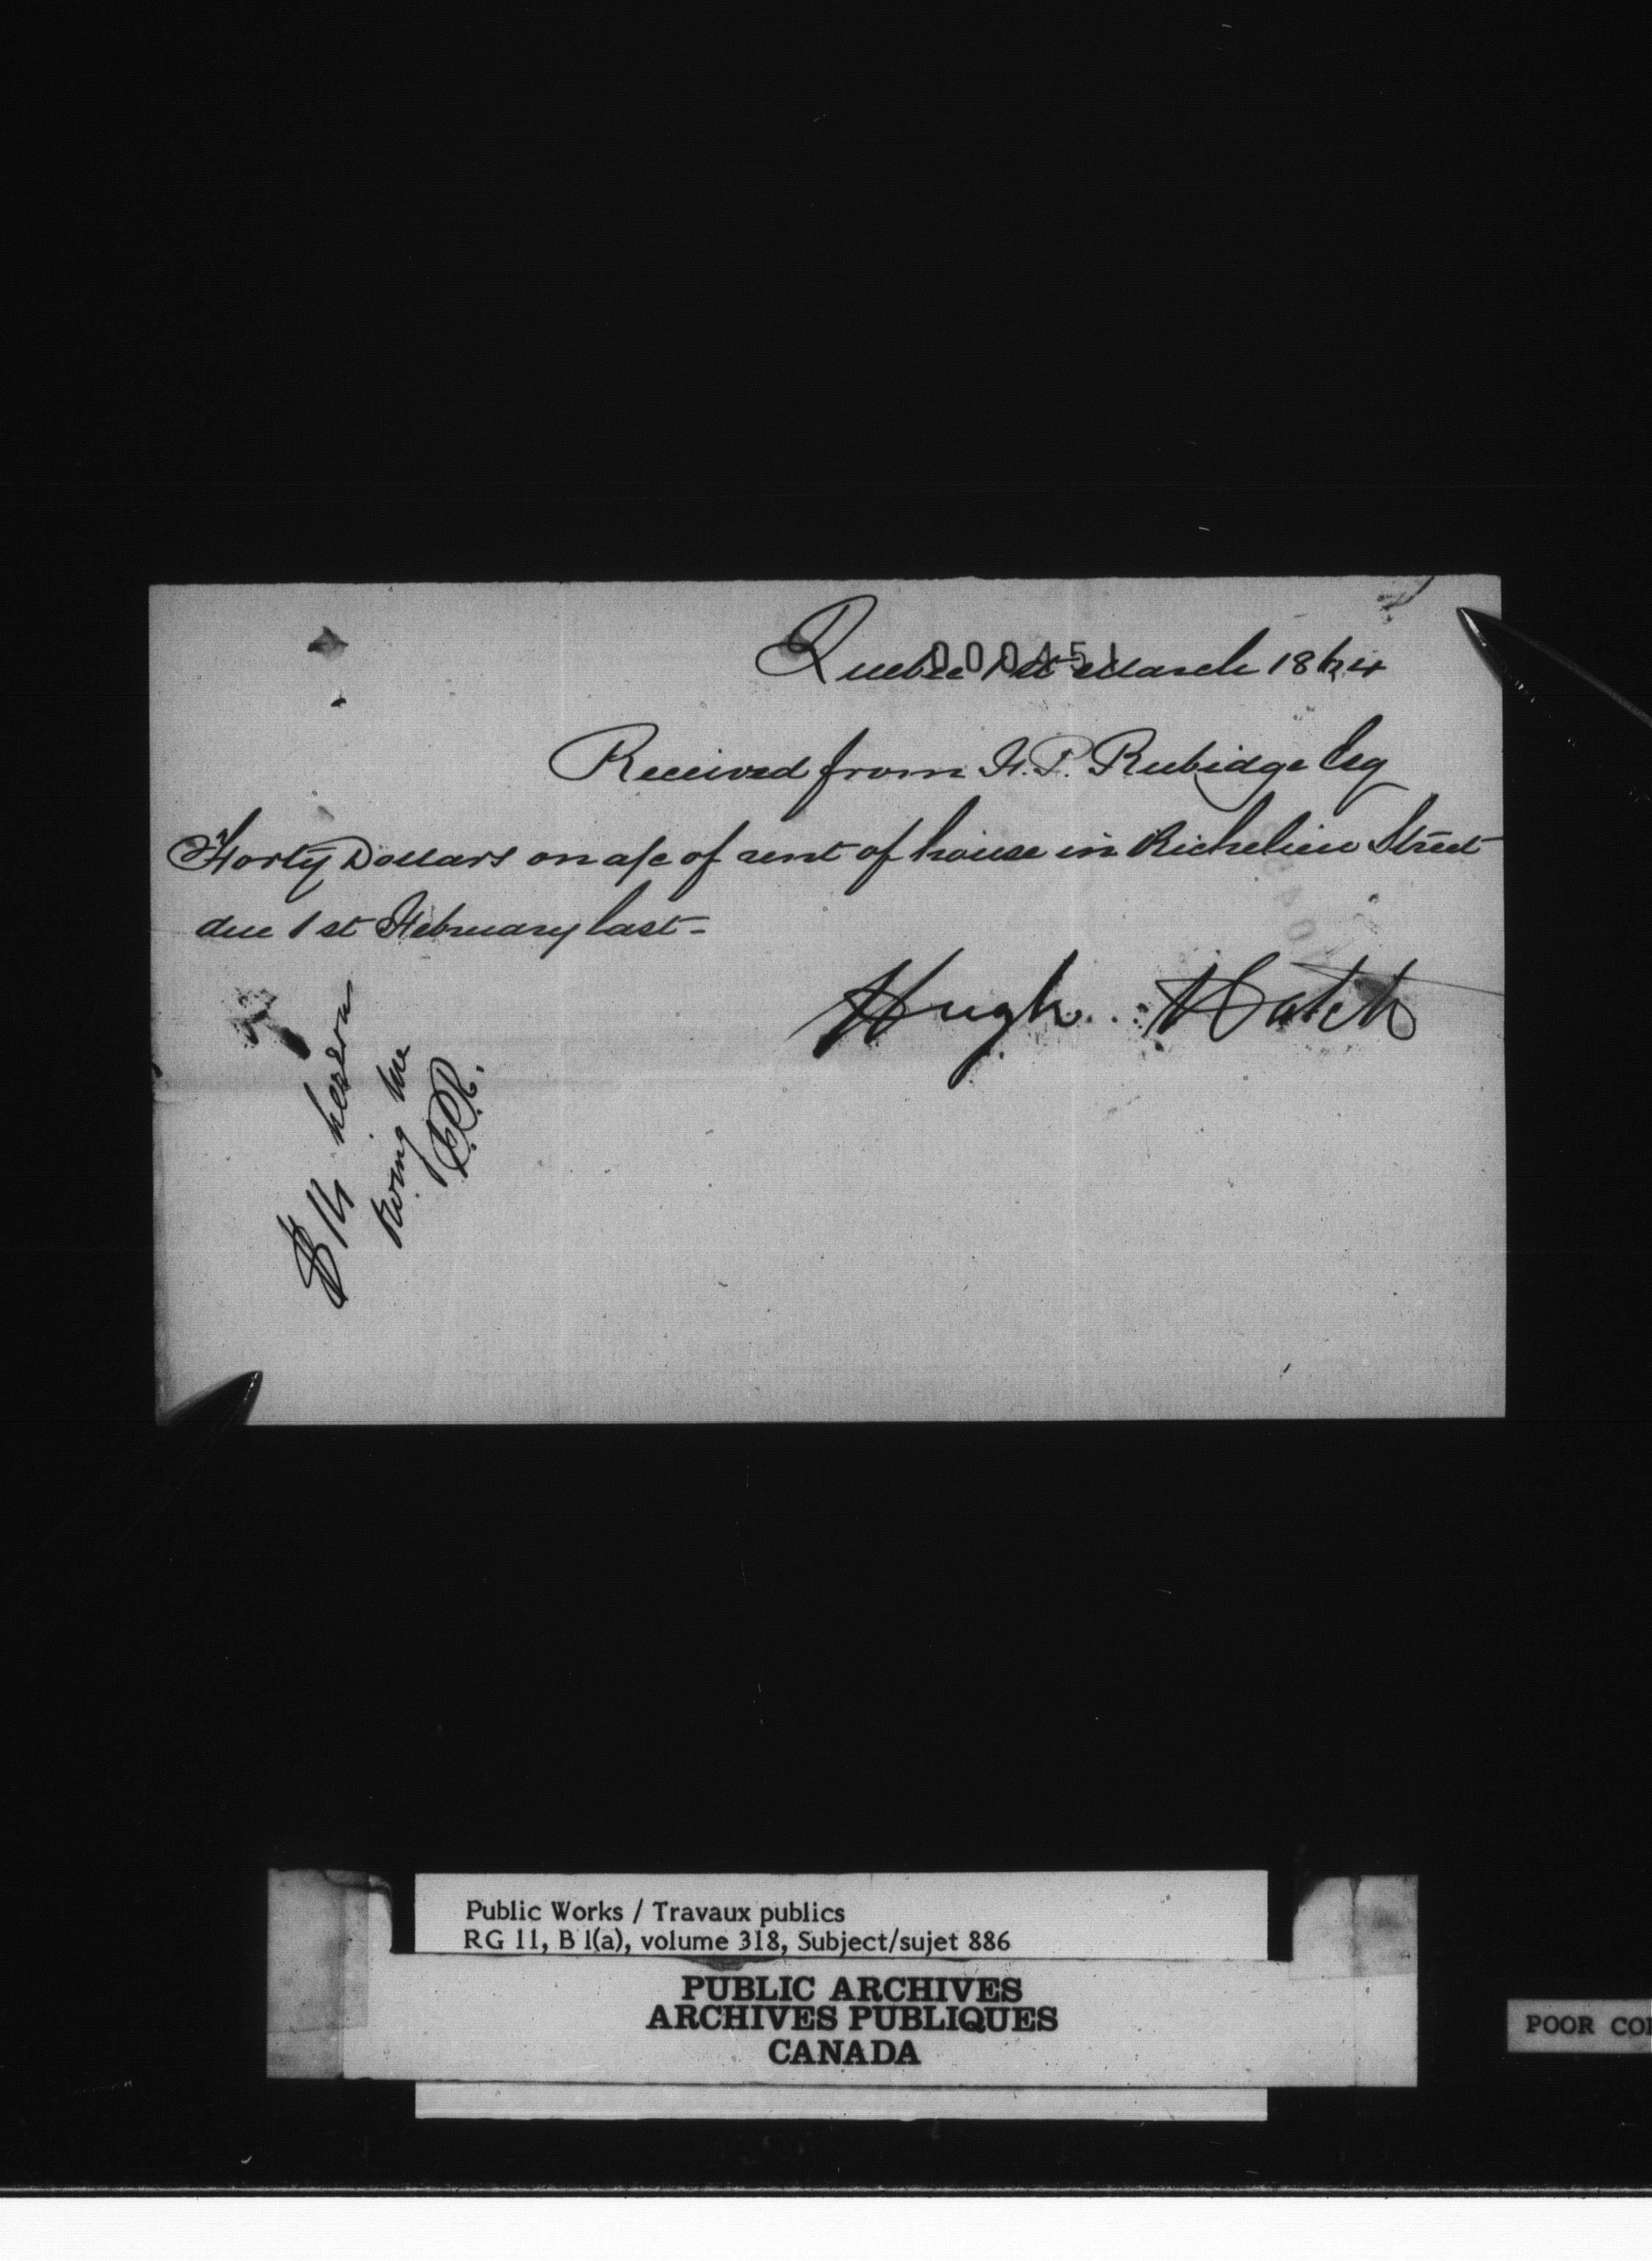 000451
Quebec 1st March 1864
Received from F. P. Rubidge Esq
Forty Dollars on a/c of rent of house in Richelieu Street
due 1st February last -
Hugh Hatch
$14 hereon
owing me
F.P.R.
Public Works / Travaux publics
RG 11, B 1(a), volume 318, Subject/sujet 886
PUBLIC ARCHIVES
ARCHIVES PUBLIQUES
CANADA
POOR